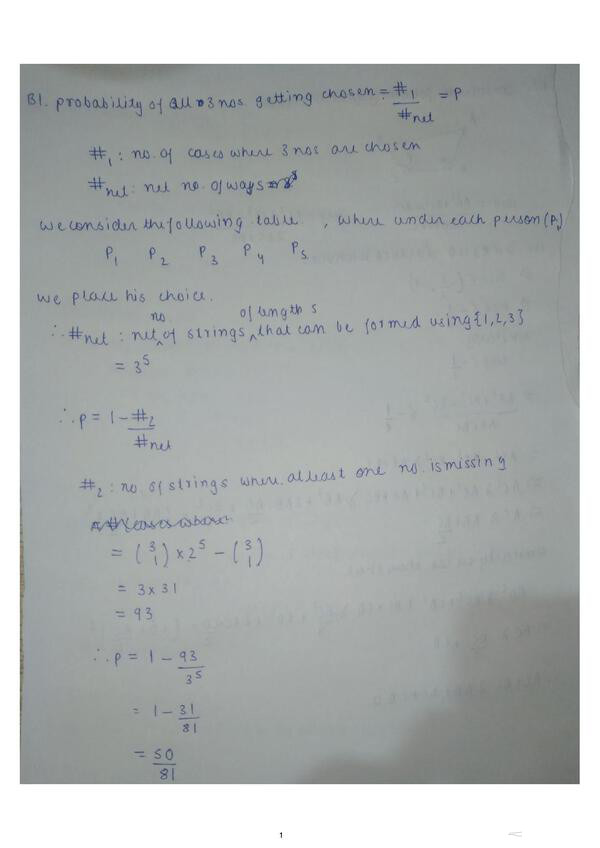 B1. probability of all 3 nos getting chosen = #₁/#net = P
#₁ : no. of cases where 3 nos are chosen
#net : net no. of ways
we consider the following table, where under each person (Pᵢ)
P₁ P₂ P₃ P₄ P₅
we place his choice.
∴ #net : net no of strings of length 5 that can be formed using {1,2,3}
= 3⁵
∴ p = 1 - #₂/#net
#₂ : no. of strings where atleast one no. is missing
= (3 1) × 2⁵ - (3 1)
= 3 × 31
= 93
∴ p = 1 - 93/3⁵
= 1 - 31/81
= 50/81
1